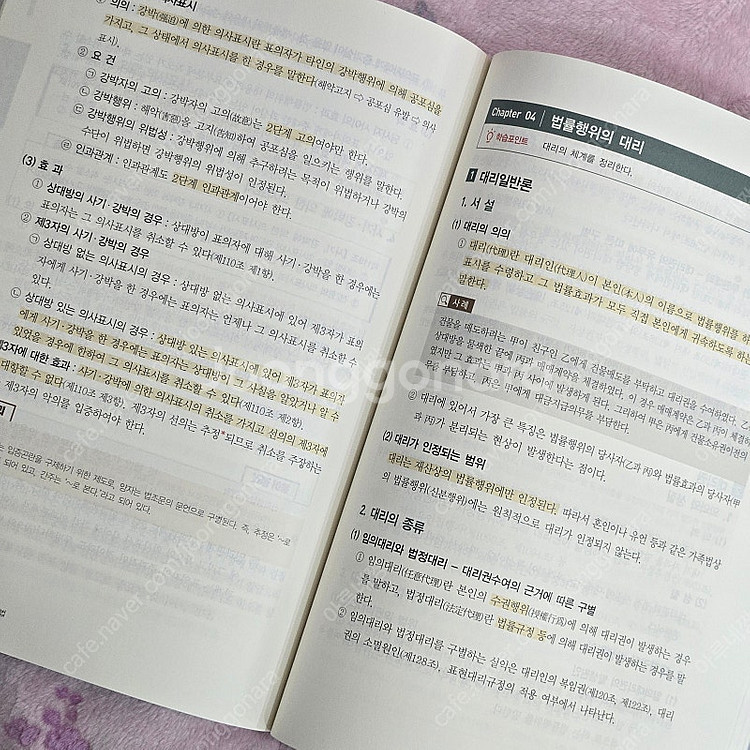 의사표시
① 의의 : 강박(強迫)에 의한 의사표시란 표의자가 타인의 강박행위에 의해 공포심을
가지고, 그 상태에서 의사표시를 한 경우를 말한다(해악고지 ⇨ 공포심 유발 ⇨ 의사
표시).
② 요 건
㉠ 강박자의 고의 : 강박자의 고의(故意)는 2단계 고의여야만 한다.
㉡ 강박행위 : 해악(害惡)을 고지(告知)하여 공포심을 일으키는 행위를 말한다.
㉢ 강박행위의 위법성 : 강박행위에 의해 추구하려는 목적이 위법하거나 강박의
수단이 위법하면 강박행위의 위법성이 인정된다.
㉣ 인과관계 : 인과관계도 2단계 인과관계이어야 한다.
(3) 효 과
① 상대방의 사기·강박의 경우 : 상대방이 표의자에 대해 사기·강박을 한 경우에는
표의자는 그 의사표시를 취소할 수 있다(제110조 제1항).
② 제3자의 사기·강박의 경우
㉠ 상대방 없는 의사표시의 경우 : 상대방 없는 의사표시에 있어 제3자가 표의
자에게 사기·강박을 한 경우에는 표의자는 언제나 그 의사표시를 취소할 수
있다.
㉡ 상대방 있는 의사표시의 경우 : 상대방 있는 의사표시에 있어 제3자가 표의자
에게 사기·강박을 한 경우에는 표의자는 상대방이 그 사실을 알았거나 알 수
있었을 경우에 한하여 그 의사표시를 취소할 수 있다(제110조 제2항).
제3자에 대한 효과 : 사기·강박에 의한 의사표시의 취소를 가지고 선의의 제3자에
대항할 수 없다(제110조 제3항). 제3자의 선의는 추정*되므로 취소를 주장하는
제3자의 악의를 입증하여야 한다.
는 입증곤란을 구제하기 위한 제도로, 양자는 법조문의 문언으로 구별된다. 즉, 추정은 '~로
되어 있고, 간주는 '~로 본다.'라고 되어 있다.
Chapter 04 법률행위의 대리
학습포인트 대리의 체계를 정리한다.
1 대리일반론
1. 서 설
(1) 대리의 의의
① 대리(代理)란 대리인(代理人)이 본인(本人)의 이름으로 법률행위를 하
표시를 수령하고, 그 법률효과가 모두 직접 본인에게 귀속하도록 하
말한다.
사례
건물을 매도하려는 甲이 친구인 乙에게 건물매도를 부탁하고 대리권을 수여하였다. 乙
상대방을 물색한 끝에 丙과 매매계약을 체결하였다. 이 경우 매매계약은 乙과 丙이 체결하
였지만 그 효과는 甲과 丙 사이에 발생하게 된다. 그리하여 甲은 丙에게 건물소유권이전의
무를 부담하고, 丙은 甲에게 대금지급의무를 부담한다.
② 대리에 있어서 가장 큰 특징은 법률행위의 당사자(乙과 丙)와 법률효과의 당사자(甲
과 丙)가 분리되는 현상이 발생한다는 점이다.
(2) 대리가 인정되는 범위
대리는 재산상의 법률행위에만 인정된다. 따라서 혼인이나 유언 등과 같은 가족법상
의 법률행위(신분행위)에는 원칙적으로 대리가 인정되지 않는다.
2. 대리의 종류
(1) 임의대리와 법정대리 – 대리권수여의 근거에 따른 구별
① 임의대리(任意代理)란 본인의 수권행위(授權行爲)에 의해 대리권이 발생하는 경우
를 말하고, 법정대리(法定代理)란 법률규정 등에 의해 대리권이 발생하는 경우를 말
한다.
② 임의대리와 법정대리를 구별하는 실익은 대리인의 복임권(제120조, 제122조), 대리
권의 소멸원인(제128조), 표현대리규정의 적용 여부에서 나타난다.